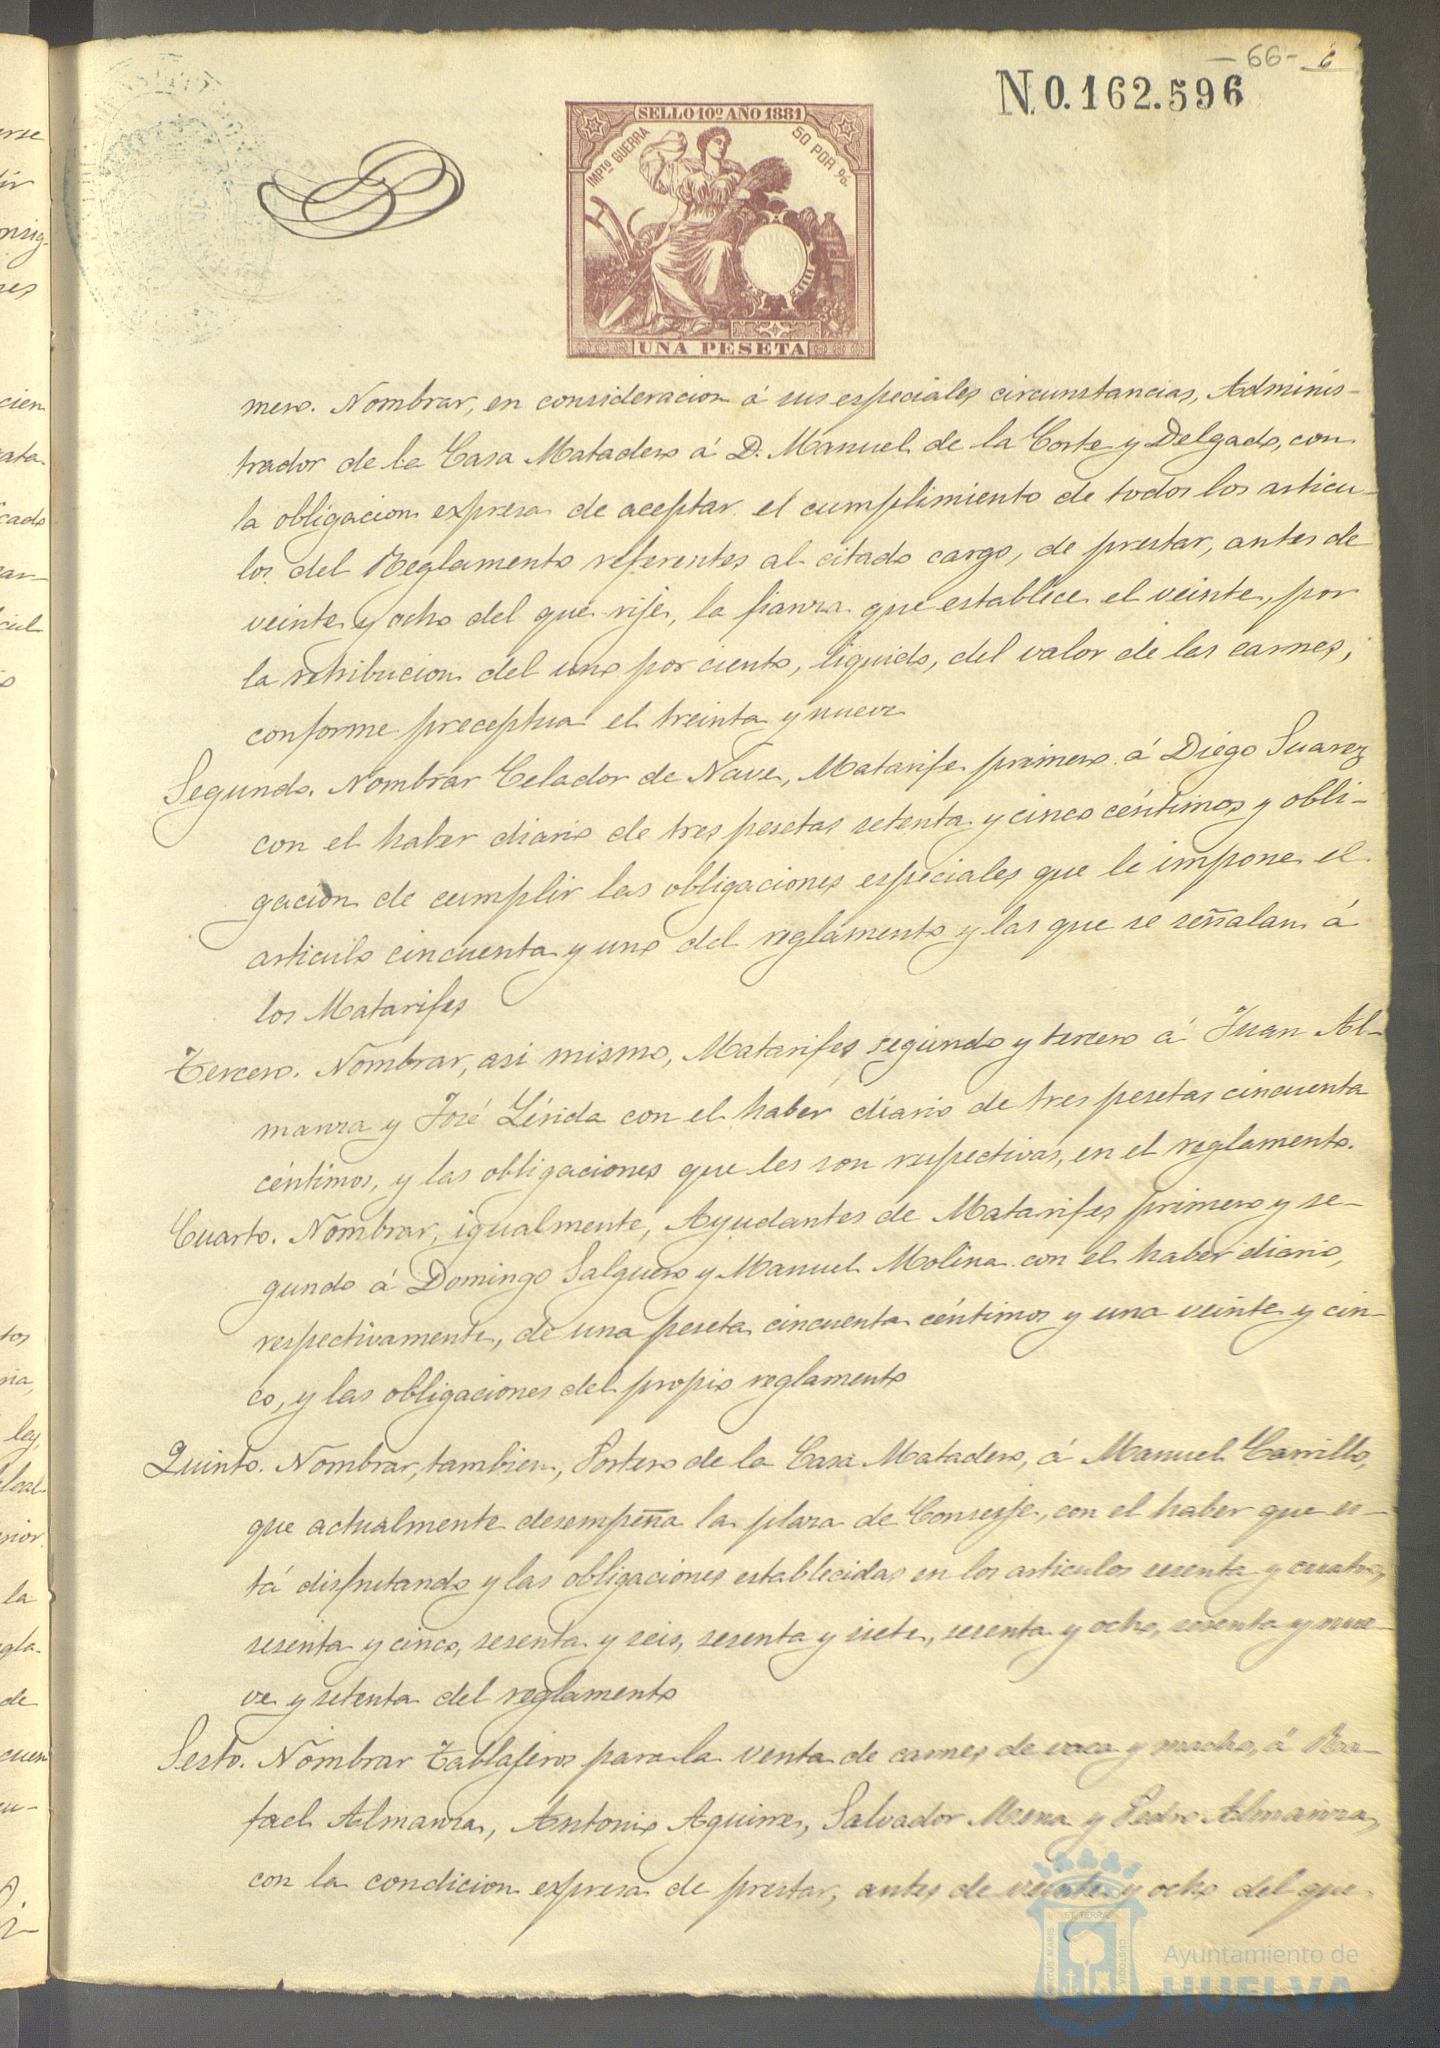 - 66 - 6
N.0.162.596
SELLO 10º AÑO 1881
IMPTO GUERRA
50 POR %.
UNA PESETA
mero. Nombrar, en consideracion á sus especiales circunstancias, Adminis-
trador de la Casa Matadero á D. Manuel de la Corte y Delgado, con
la obligacion expresa de aceptar el cumplimiento de todos los articu-
los del Reglamento referentes al citado cargo, de prestar, antes de
veinte y ocho del que rije, la fianza que establece el veinte, por
la retribucion del uno por ciento, liquido, del valor de las carnes,
conforme preceptua el treinta y nueve
Segundo. Nombrar Celador de Nave, Matarife primero á Diego Suarez
con el haber diario de tres pesetas setenta y cinco céntimos y obli-
gacion de cumplir las obligaciones especiales que le impone el
articulo cincuenta y uno del reglamento y las que se señalan á
los Matarifes
Tercero. Nombrar, asi mismo, Matarifes segundo y tercero á Juan Al-
manza y José Lérida con el haber diario de tres pesetas cincuenta
céntimos, y las obligaciones que les son respectivas, en el reglamento.
Cuarto. Nombrar, igualmente, Ayudantes de Matarifes primero y se-
gundo á Domingo Salguero y Manuel Molina con el haber diario,
respectivamente, de una peseta cincuenta céntimos y una veinte y cin-
co, y las obligaciones del propio reglamento
Quinto. Nombrar, tambien, Portero de la Casa Matadero, á Manuel Carrillo,
que actualmente desempeña la plaza de Conserje, con el haber que es-
tá disfrutando y las obligaciones establecidas en los articulos sesenta y cuatro,
sesenta y cinco, sesenta y seis, sesenta y siete, sesenta y ocho, sesenta y nue-
ve y setenta del reglamento
Sesto. Nombrar Tablajeros para la venta de carnes de vaca y macho, á Ra-
fael Almanza, Antonio Aguirre, Salvador Mena y Pedro Almanza,
con la condicion expresa de prestar, antes de veinte y ocho del que
Ayuntamiento de
HUELVA